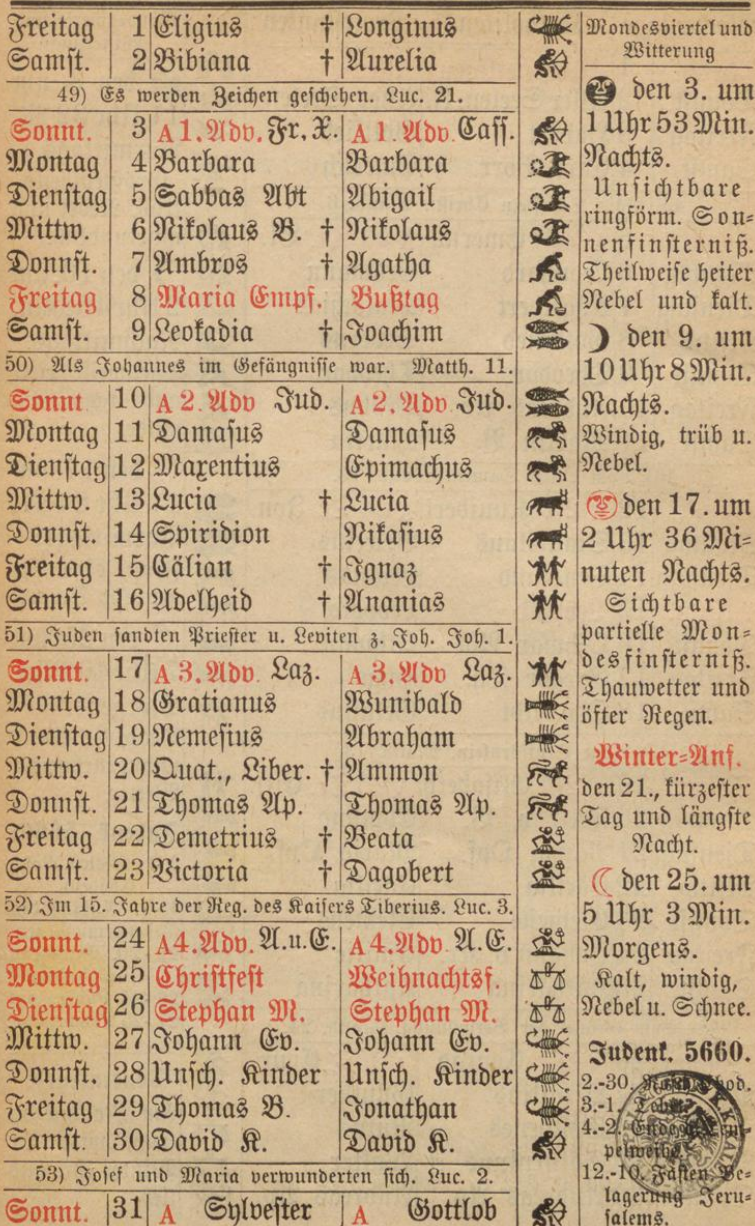 Freitag 1 Eligius † Longinus
Samst. 2 Bibiana † Aurelia
49) Es werden Zeichen geschehen. Luc. 21.
Sonnt. 3 A 1. Adv. Fr. X. A 1. Adv. Cass.
Montag 4 Barbara Barbara
Dienstag 5 Sabbas Abt Abigail
Mittw. 6 Nikolaus B. † Nikolaus
Donnst. 7 Ambros † Agatha
Freitag 8 Maria Empf. Bußtag
Samst. 9 Leokadia † Joachim
50) Als Johannes im Gefängnisse war. Matth. 11.
Sonnt 10 A 2. Adv Jud. A 2. Adv Jud.
Montag 11 Damasus Damasus
Dienstag 12 Maxentius Epimachus
Mittw. 13 Lucia † Lucia
Donnst. 14 Spiridion Nikasius
Freitag 15 Cälian † Ignaz
Samst. 16 Adelheid † Ananias
51) Juden sandten Priester u. Leviten z. Joh. Joh. 1.
Sonnt. 17 A 3. Adv. Laz. A 3. Adv Laz.
Montag 18 Gratianus Wunibald
Dienstag 19 Nemesius Abraham
Mittw. 20 Quat., Liber. † Ammon
Donnst. 21 Thomas Ap. Thomas Ap.
Freitag 22 Demetrius † Beata
Samst. 23 Victoria † Dagobert
52) Im 15. Jahre der Reg. des Kaisers Tiberius. Luc. 3.
Sonnt. 24 A 4. Adv. A.u.E. A 4. Adv. A.E.
Montag 25 Christfest Weihnachtsf.
Dienstag 26 Stephan M. Stephan M.
Mittw. 27 Johann Ev. Johann Ev.
Donnst. 28 Unsch. Kinder Unsch. Kinder
Freitag 29 Thomas B. Jonathan
Samst. 30 David K. David K.
53) Josef und Maria verwunderten sich. Luc. 2.
Sonnt. 31 A Sylvester A Gottlob
Mondesviertel und
Witterung
den 3. um
1 Uhr 53 Min.
Nachts.
Unsichtbare
ringförm. Son=
nenfinsterniß.
Theilweise heiter
Nebel und kalt.
☽ den 9. um
10 Uhr 8 Min.
Nachts.
Windig, trüb u.
Nebel.
den 17. um
2 Uhr 36 Mi=
nuten Nachts.
Sichtbare
partielle Mon=
desfinsterniß.
Thauwetter und
öfter Regen.
Winter=Anf.
den 21., kürzester
Tag und längste
Nacht.
☾ den 25. um
5 Uhr 3 Min.
Morgens.
Kalt, windig,
Nebel u. Schnee.
Judenk. 5660.
2.-30.
3.-1.
4.-2.
pelweihe
12.-10. Fasten, Be=
lagerung Jeru=
salems.